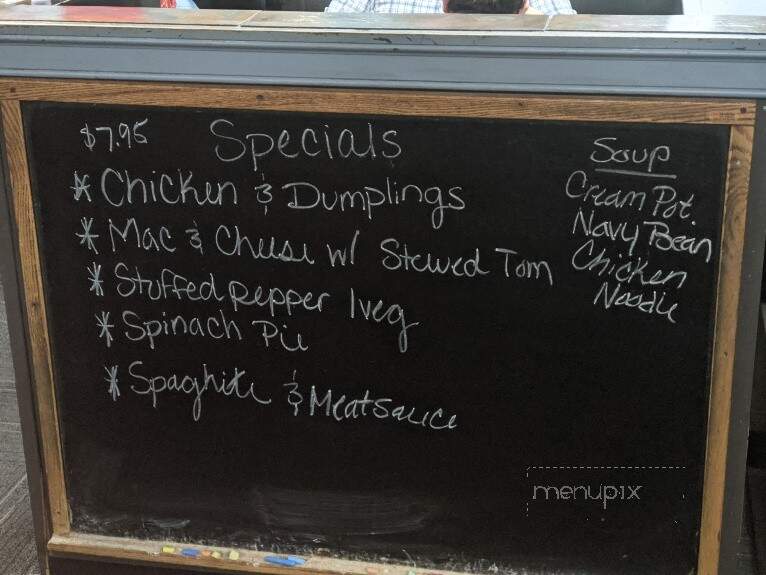 $7.95 Specials
* Chicken & Dumplings
* Mac & Cheese w/ Stewed Tom
* Stuffed pepper 1veg
* Spinach Pie
* Spaghitti & Meatsauce
Soup
Cream Pot.
Navy Bean
Chicken
Noodle
menupix